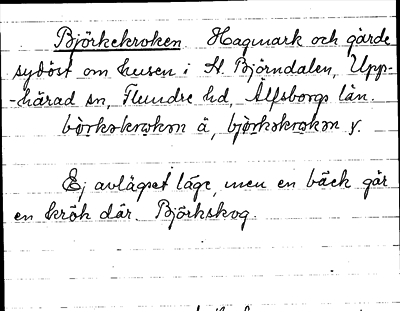 Björkekroken. Hagmark och gärde
sydöst om husen i St. Björndalen, Upp-
-härad sn, Flundre hd, Älfsborgs län.
bör̥kəkrωkən ä, björ̥kəkrωkən y.
Ej avlägset läge, men en bäck går
en krök där. Björkskog.